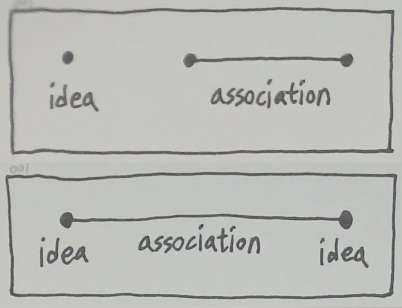 idea association
001
idea association idea